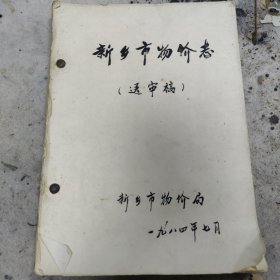 新乡市物价志
（送审稿）
新乡市物价局
一九八四年七月